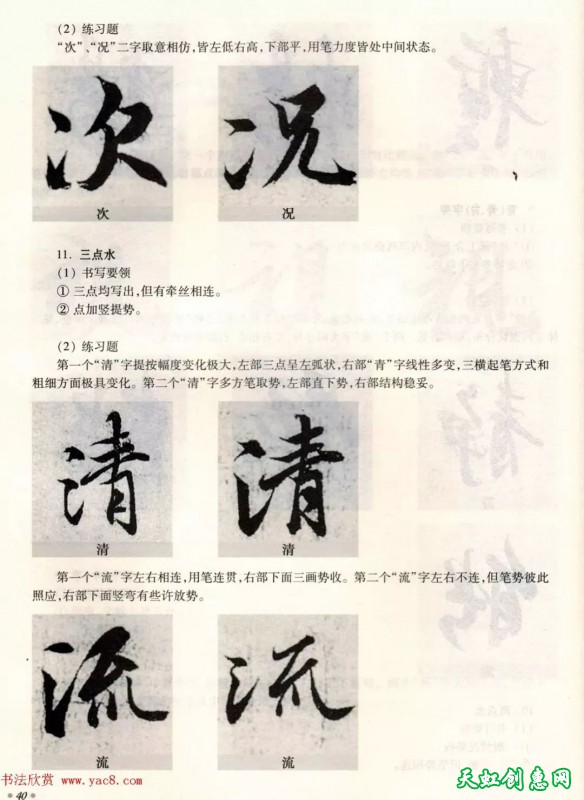 (2) 练习题
“次”、“况”二字取意相仿,皆左低右高,下部平,用笔力度皆处中间状态。
次 况
次 况
11. 三点水
(1) 书写要领
① 三点均写出,但有牵丝相连。
② 点加竖提势。
(2) 练习题
第一个“清”字提按幅度变化极大,左部三点呈左弧状,右部“青”字线性多变,三横起笔方式和
粗细方面极具变化。第二个“清”字多方笔取势,左部直下势,右部结构稳妥。
清 清
清 清
第一个“流”字左右相连,用笔连贯,右部下面三画势收。第二个“流”字左右不连,但笔势彼此
照应,右部下面竖弯有些许放势。
流 流
流 流
书法欣赏 www.yac8.com
• 40 •
天虹创意网